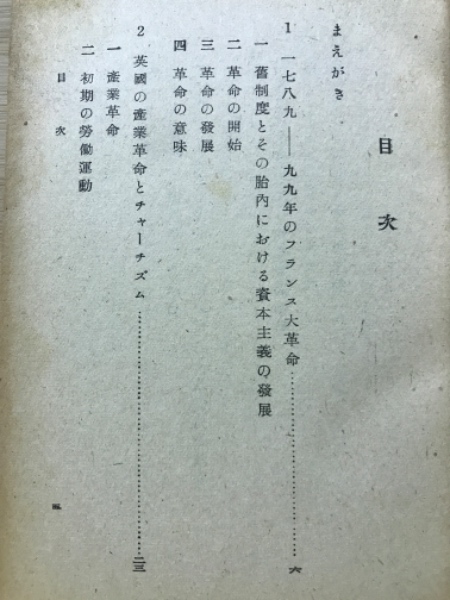 目次
まえがき
1 一七八九――九九年のフランス大革命……………………六
一 舊制度とその胎內における資本主義の發展
二 革命の開始
三 革命の發展
四 革命の意味
2 英國の產業革命とチャーチズム……………………二三
一 產業革命
二 初期の勞働運動
目次